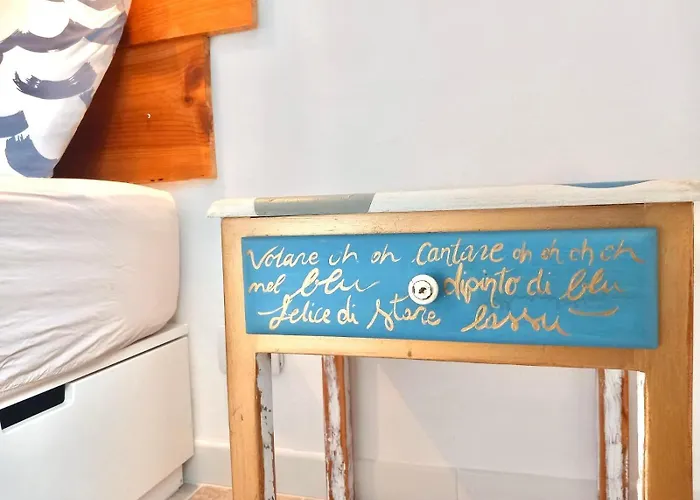 Volare oh oh Cantare oh oh oh oh
nel blu dipinto di blu
felice di stare lassu